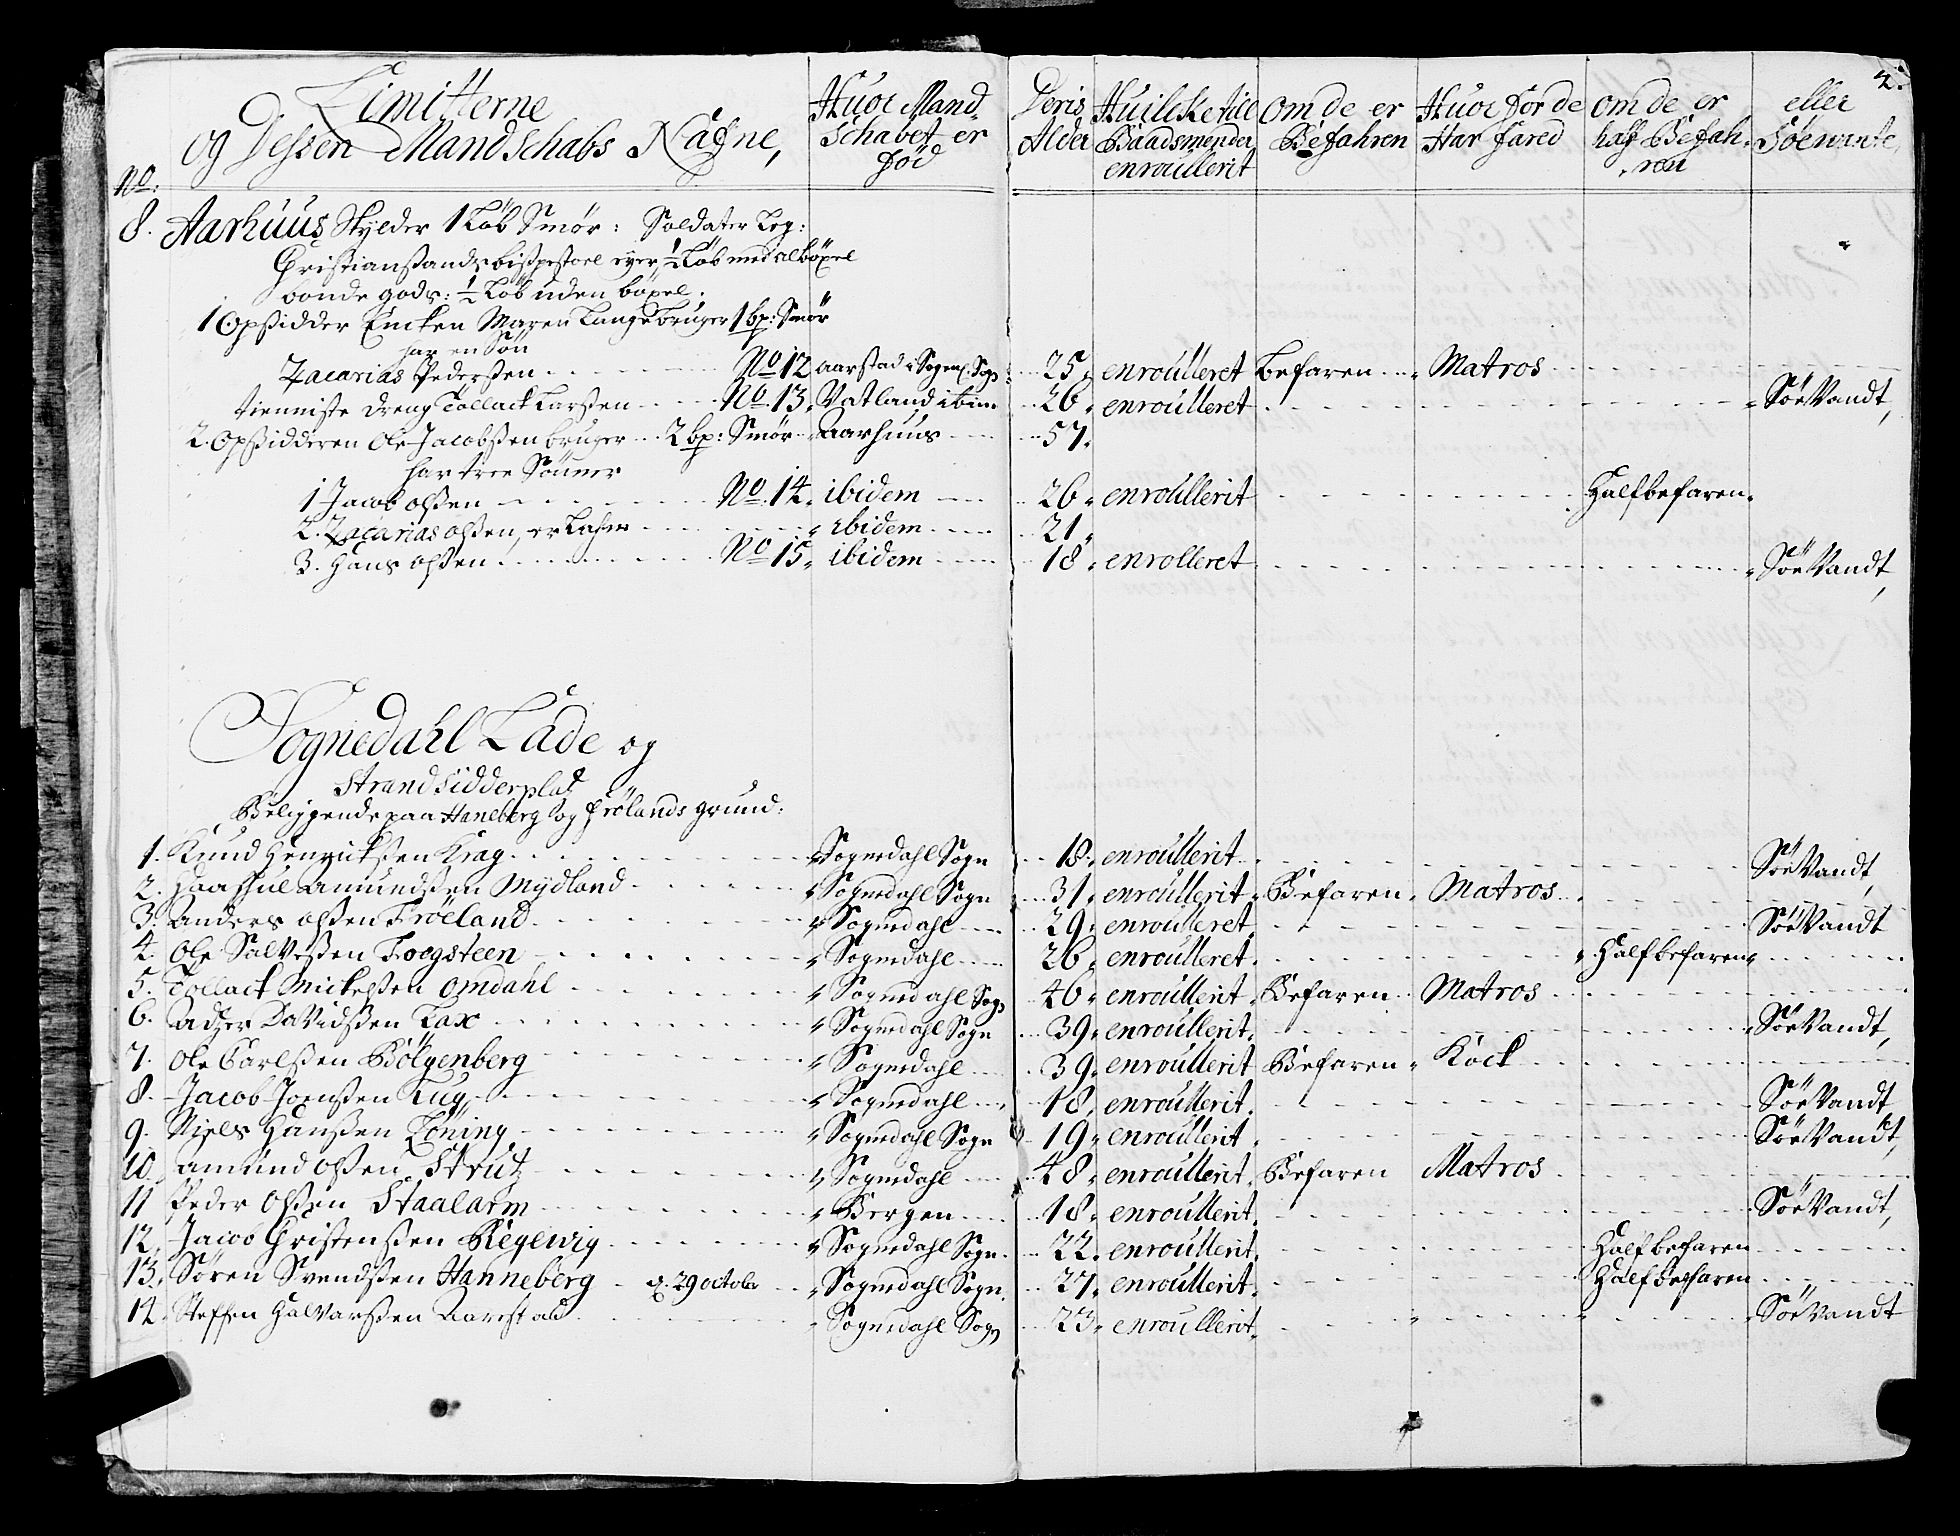 2.
No: Limitterne og Dessen Mandschabs Nafne, | Huor Mandschabet er Död | Deris Alder | Huilcke till Baadsmender enroullerit | Om de er Befahren | Huor for de Har fared | Om de er half Befahren | eller Söewante,
8. Aarhuus Skylder 1 Löb Smör: Soldater Leg:
Christiansands bispestoel eyer, ½ Löb med all böxel
bonde gods: ½ Löb uden böxel.
1 Opsidder Encken Maren Lange bruger 1 bp: Smör
har en Sön
Zacarias Pedersen No 12 Aarstad i Sogned. Sogn 25, enroulleret Befaren Matros
tienniste dreng Tollack Larsen No. 13, Vatland ibim 26, enroulleret SöeVandt,
2. Opsidderen Ole Jacobsen bruger 2 bp: Smör Aarhuus 57,
har tree Sönner
1 Jacob olsen No. 14, ibidem 26, enroullerit Halfbefaren,
2. Zacarias olsen, er Lahm ibidem 21,
3. Hans olsen No 15, ibidem 18, enrolleret SöeVandt,
Sognedahl Lade og
Strandsidderplatz
Beliggende paa Haneberg og frölands grund:
1. Knud Henricksen Krag Sognedahl Sogn 18, enroullerit SöeVandt,
2. Haafhul Amundsen Mydland Sognedahl Sogn 31, enroullerit Befaren, Matros
3. Anders olsen Fröeland Sognedahl 29, enroulleret SöeVandt
4. Ole Salvesen Foegsteen Sognedahl 26, enroulleret Halfbefaren,
5. Tollack Mickelsen Omdahl Sognedahl Sogn 46, enroullerit, Befaren Matros
6. Adzer Davidsen Lax Sognedahl Sogn 39, enroullerit, SöeVandt,
7. Ole Carlsen Bölgenberg Sognedahl 39, enroullerit Befaren, Kock
8. Jacob Joensen Lug Sognedahl 18, enroullerit, SöeVandt
9. Niels Hansen Löning Sognedahl Sogn 19, enroullerit SöeVandt,
10. Amund olsen Strutz Sognedahl 48, enroullerit, Befaren Matros
11 Peder olsen Staalarm Bergen 18, enroullerit, SöeVandt,
12. Jacob Christensen Regevig Sognedahl Sogn 22, enroullerit, Halfbefaren
13. Sören Svendsen Hanneberg d. 29 octobr Sognedahl Sogn, 27, enroullerit, Halfbefaren
14. Steffen Halvarsen Aarstad Sognedahl Sogn 23, enroullerit, SöeVandt